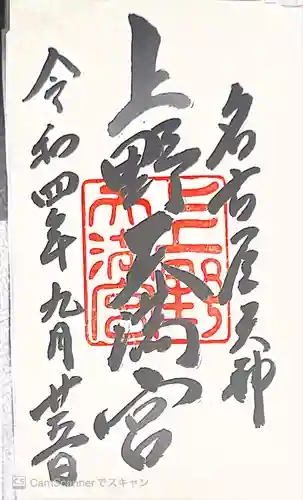 名古屋天神
上野天満宮
令和四年九月廿五日
上野
天満宮
CS CamScanner でスキャン